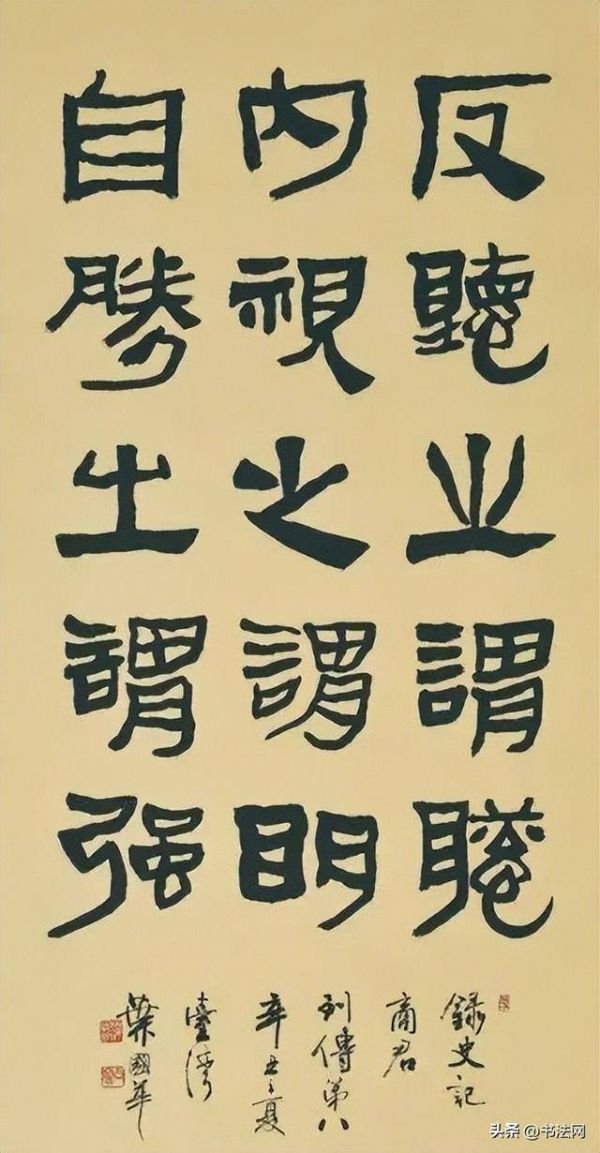 反聽之謂聰
內視之謂明
自勝之謂强
錄史記
商君
列傳第八
辛丑之夏
臺灣
葉國華
头条 @书法网